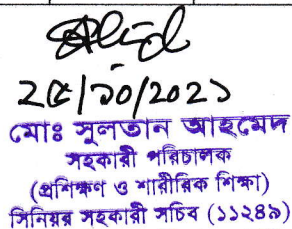 ২৫/১০/২০২১
মোঃ সুলতান আহমেদ
সহকারী পরিচালক
(প্রশিক্ষণ ও শারীরিক শিক্ষা)
সিনিয়র সহকারী সচিব (১১২৪৯)